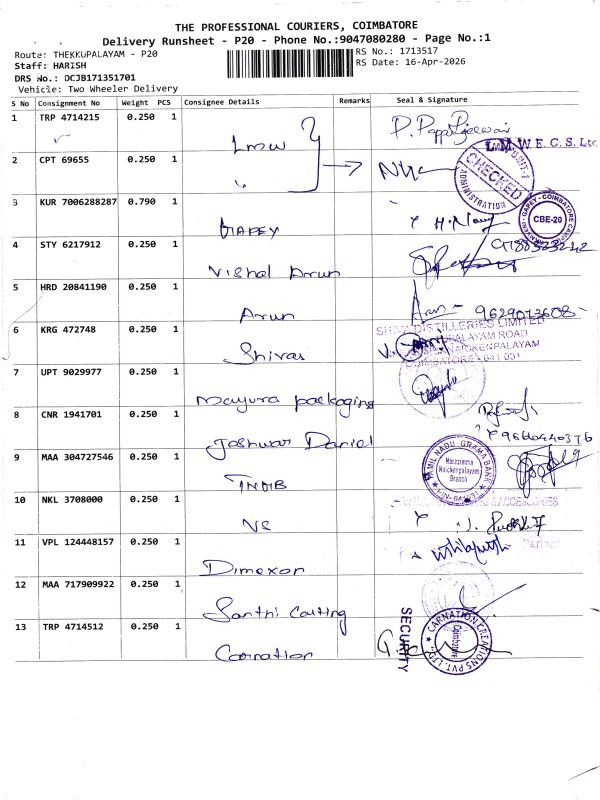 THE PROFESSIONAL COURIERS, COIMBATORE
Delivery Runsheet - P20 - Phone No.:9047080280 - Page No.:1
Route: THEKKUPALAYAM - P20
RS No.: 1713517
Staff: HARISH
RS Date: 16-Apr-2026
DRS No.: DCJB171351701
Vehicle: Two Wheeler Delivery
S No Consignment No Weight PCS Consignee Details Remarks Seal & Signature
1 TRP 4714215 0.250 1 LMW
2 CPT 69655 0.250 1
L.M.W.E.C.S. Ltd
CHECKED
ADMINISTRATION
3 KUR 7006288287 0.790 1 GAPEY
CBE-20
4 STY 6217912 0.250 1 Vishal Arun
5 HRD 20841190 0.250 1 Arun
6 KRG 472748 0.250 1 Shivas
DISTILLERIES LIMITED
COIMBATORE - 641 031
7 UPT 9029977 0.250 1 Mayura packaging
8 CNR 1941701 0.250 1 Jashwar Daniel
9 MAA 304727546 0.250 1 TNGB
TAMIL NADU GRAMA BANK
Naickenpalayam
Branch
10 NKL 3708000 0.250 1 VS
ACCESSORIES
11 VPL 124448157 0.250 1 Dimexon
Partner
12 MAA 717909922 0.250 1 Santhi Casting
13 TRP 4714512 0.250 1 Carnation
SECURITY
CARNATION CREATIONS PVT. LTD.
Coimbatore